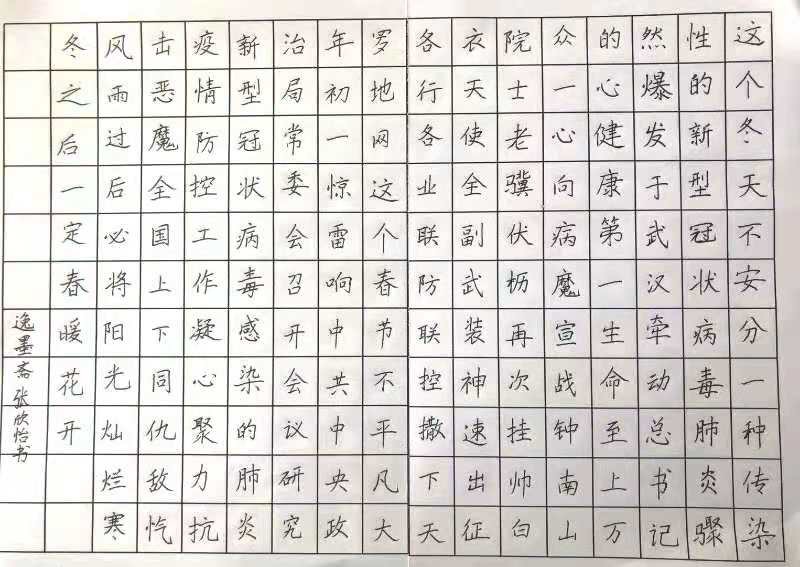 这个冬天不安分一种传染
性的新型冠状病毒肺炎骤
然爆发于武汉牵动总书记
的心健康第一生命至上万
众一心向病魔宣战钟南山
院士老骥伏枥再次挂帅白
衣天使全副武装神速出征
各行各业联防联控撒下天
罗地网这个春节不平凡大
年初一惊雷响中共中央政
治局常委会召开会议研究
新型冠状病毒感染的肺炎
疫情防控工作凝心聚力抗
击恶魔全国上下同仇敌忾
风雨过后必将阳光灿烂寒
冬之后一定春暖花开
逸墨斋 张欣怡书